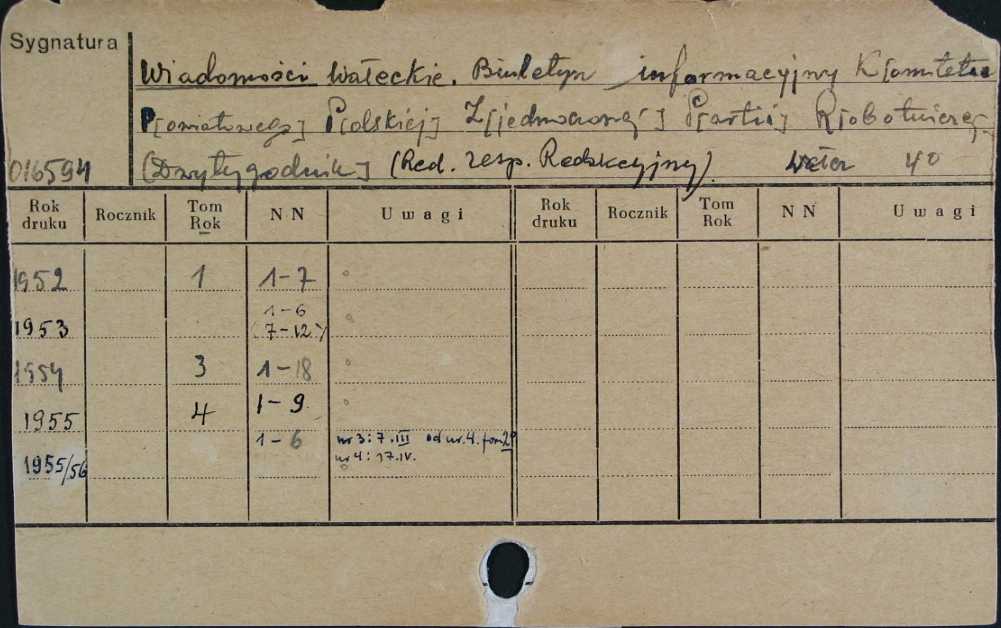 Sygnatura
Wiadomości Wałeckie. Biuletyn informacyjny K[omitetu
P[owiatowego] P[olskiej] Z[jednoczonej] P[artii] R[obotniczej]
016594 [Dwutygodnik] (Red. zesp. Redakcyjny). Wałcz 4°
Rok druku Rocznik Tom Rok N N Uwagi Rok druku Rocznik Tom Rok N N Uwagi
1952 1 1-7 °
1-6
1953 (7-12) °
1954 3 1-18 °
1955 4 1-9. °
1-6 nr 3: 7.III od nr. 4. form 2°
1955/56 nr 4: 17.IV.
°